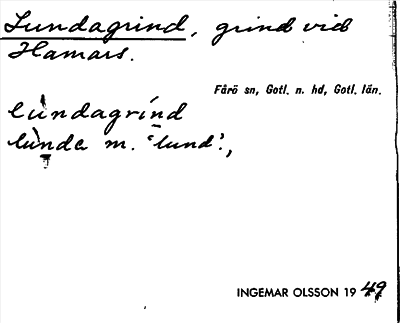 Lundagrind, grind vid
Hamars.
Fårö sn, Gotl. n. hd, Gotl. län.
lùndagrínd
lùnda m. 'lund',
INGEMAR OLSSON 19 49